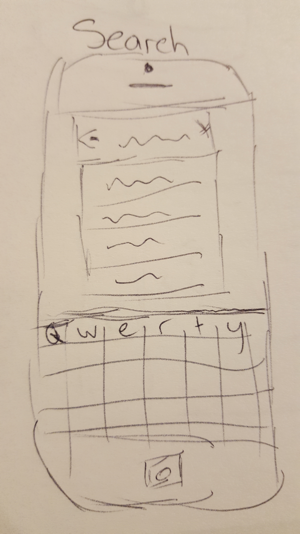 Search
Q w e r t y